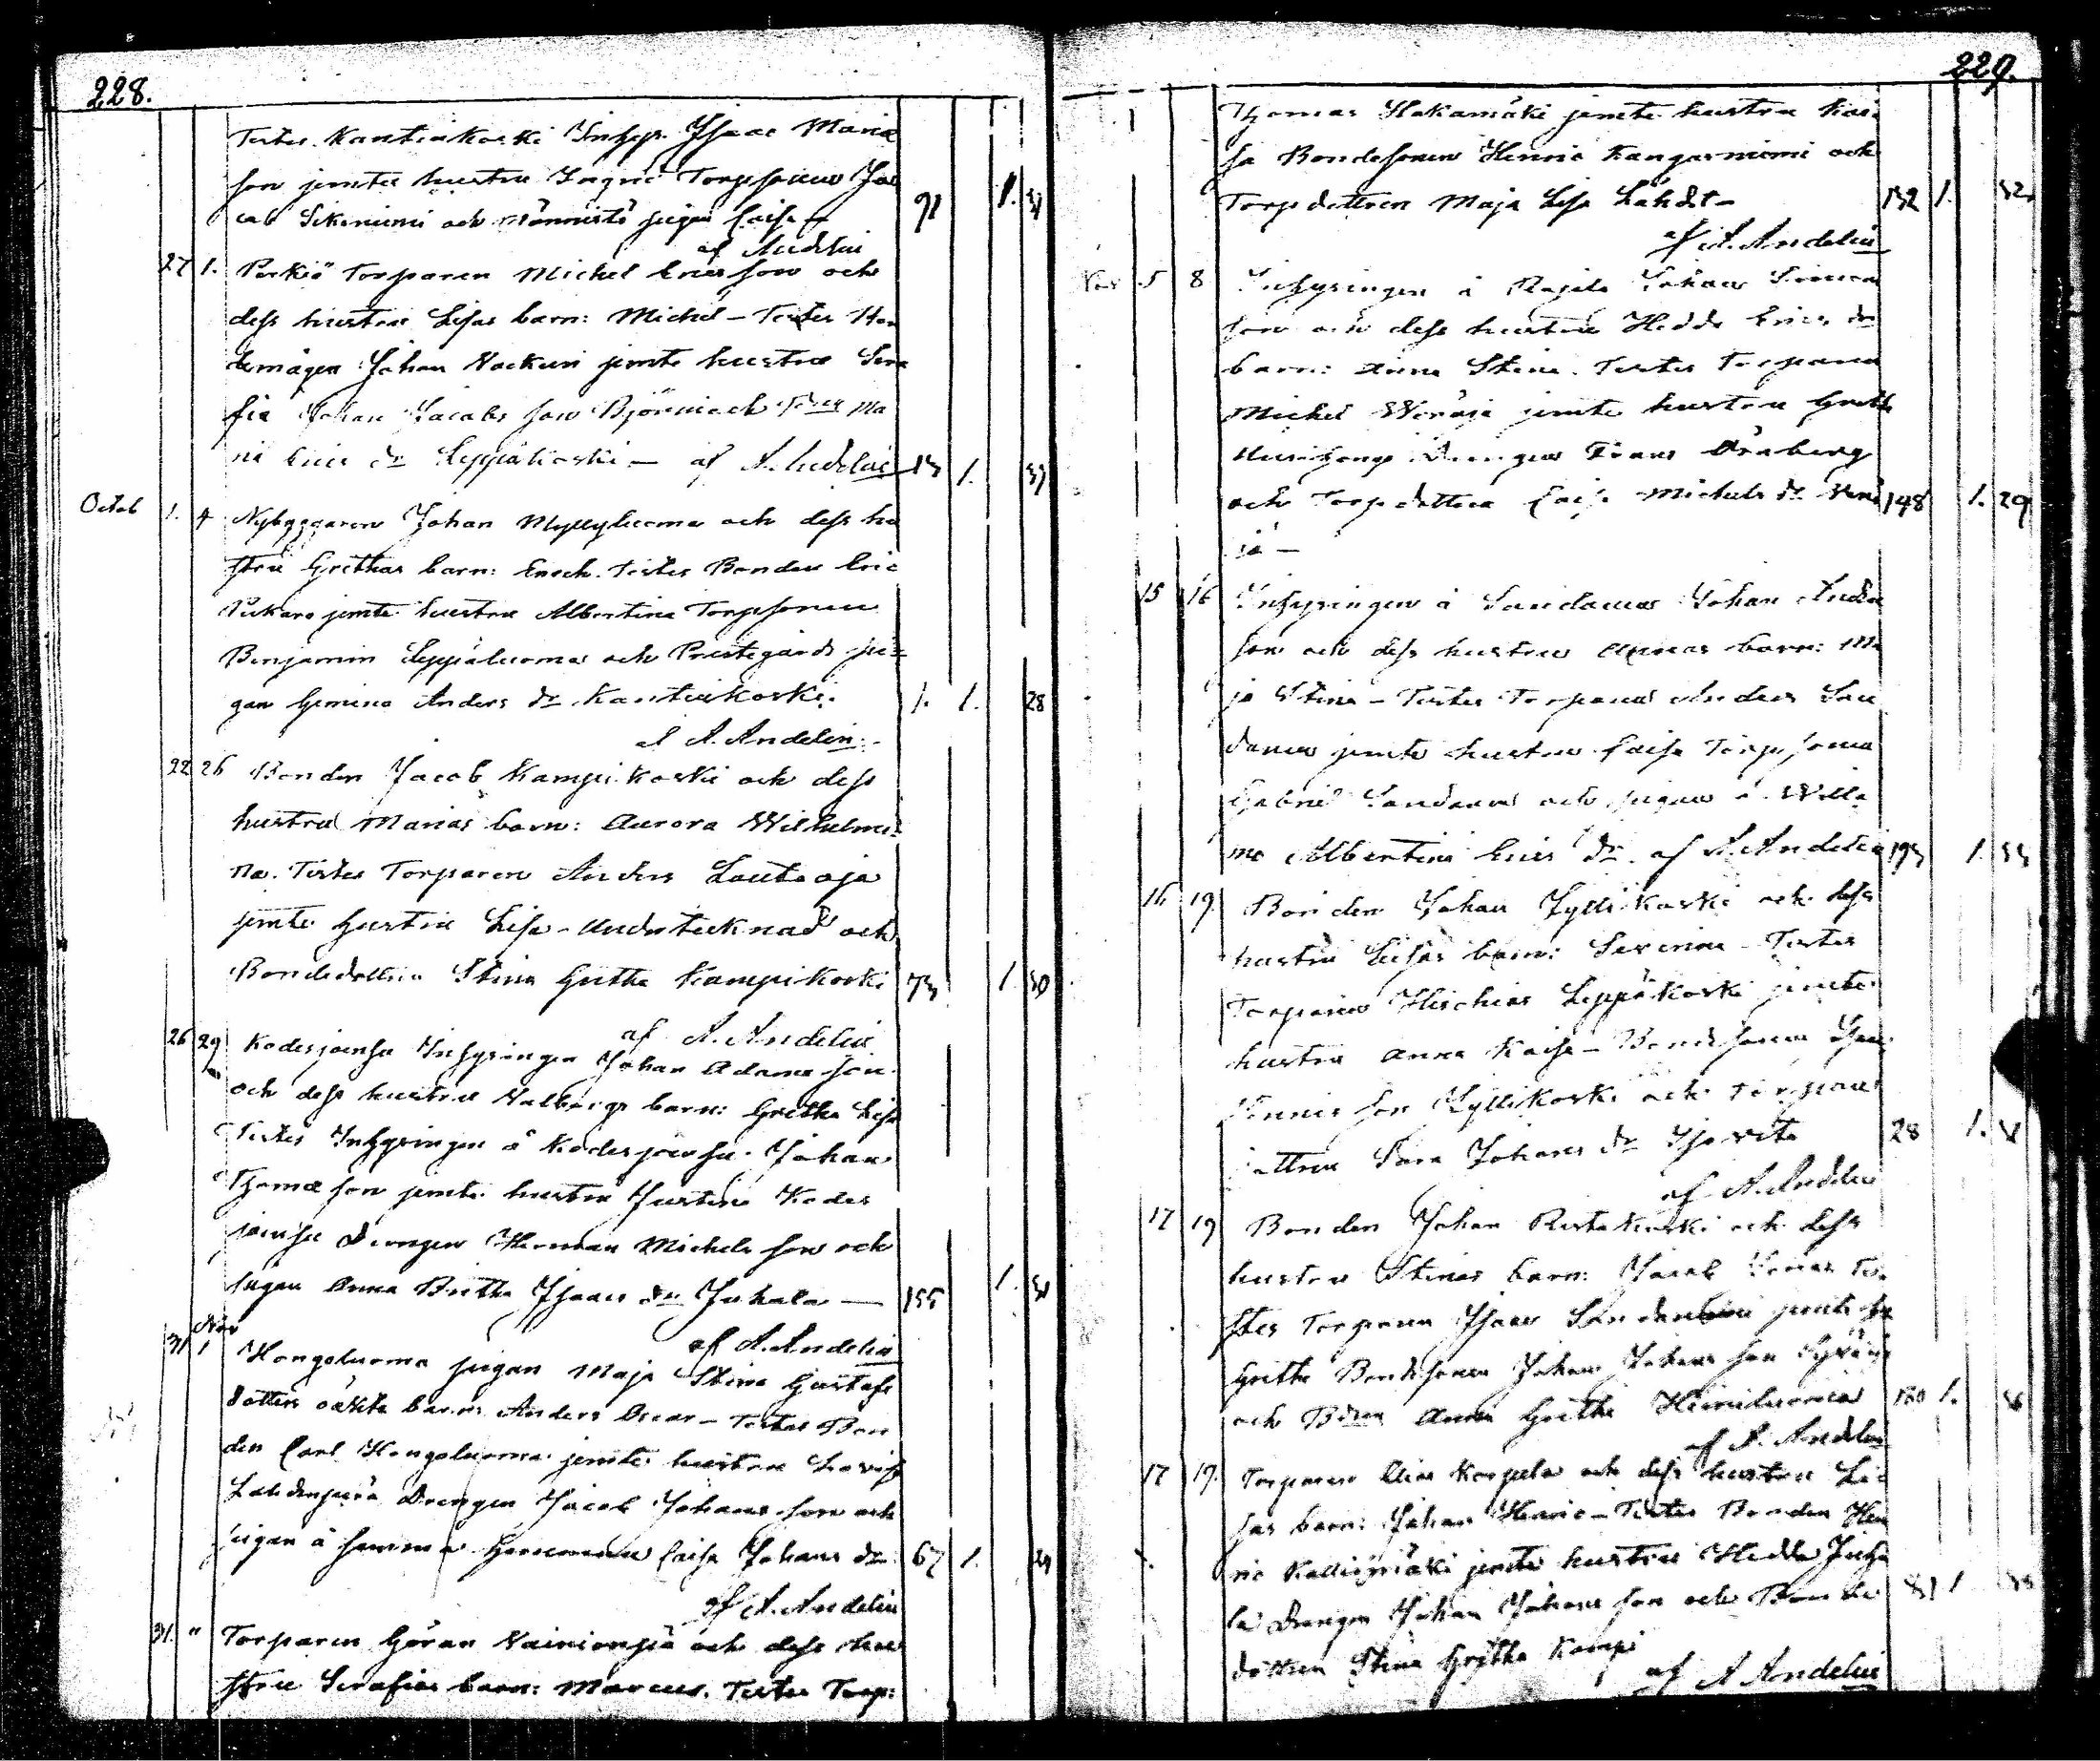 228.
Testes. Kantiakoski Inhys. Isaac Maria
son jemte hustru Ingrid Torpsonen Ja
cob Sikiniemi och Männistö pigan Caisa 91 1. 31
af Andelin
27 1. Porkiö Torparen Michel Ericsson och
dess hustru Lisas barn: Michel – Testes Hem
bemågen Johan Nackuri jemte hustru Sera
fia Johan Jacobs son Björni och Ma
ria Erics dr Leppäkoski – af A. Andelin 13 1. 33
Octob 1. 4 Nybyggaren Johan Myllyluoma och dess hu
stru Grethas barn: Enoch. Testes Bonden Eric
Pukara jemte hustru Albertina Torpsonen
Benjamin Leppäluoma och Prestegårds pi=
gan Gemina Anders dr Kantiakoski. 1. 1. 28
af A. Andelin.
22 26 Bonden Jacob Kampikoski och dess
hustru Marias barn: Aurora Wilhelmi=
na. Testes Torparen Anders Lautaoja
jemte hustru Lisa – Undertecknad och
Bondedottren Stina Gretha Kampikoski 73 1. 30
af A. Andelin
26 29 Kodesjoensu Inhysingen Johan Adams son
och dess hustru Valborgs barn: Gretha Lisa
Testes Inhysingen å Kodesjoensu Johan
Thomæ son jemte hustru Justina Kodes
joensu Drengen Herman Michels son och
pigan Anna Britha Isaacs dr Juhala — 155 1.
af A. Andelin
31 Nov 1 Hongoluoma pigan Maja Stina Gustafs
dotters oäkta barn: Anders Oscar – Testes Bon
den Carl Hongoluoma jemte hustru Lovisa
Lahdenperä Drengen Jacob Johans son och
pigan å samma hemman Caisa Johans dr 67 1. 24
af A. Andelin
31. " Torparen Göran Vainionpää och dess hu
stru Serafias barn: Marcus. Testes Torp:
229.
Thomas Hakamäki jemte hustru Kai
sa Bondesonen Henric Kangasniemi och
Torpdottren Maja Lisa Lähdet – 132 1. 32
af A. Andelin
Nov 5 8 Inhysingen å Rajala Johan Simon
son och dess hustru Hedda Erics dr
barn: Anna Stina. Testes Torparen
Michel Weräjä jemte hustru Greth
Drengen Frans Öraberg
och Torpdottren Caisa Michels dr Verä 148 1. 29
jä –
15 16 Inhysingen å Sandanus Johan Anders
son och dess hustru Annas barn: Ma
ja Stina – Testes Torparen Anders San
danus jemte hustru Caisa Torpsonen
Gabriel Sandanus och pigan å Willa
mo Albertina Erics dr. af A. Andelin 193 1. 33
16 19. Bonden Johan Jyllikoski och dess
hustru Lisas barn: Severina – Testes
Torparen Hischias Leppäkoski jemte
hustru Anna Kaisa – Bondesonen Isaac
Henrics son Kyllikoski och Torpare
dottren Sara Johans dr 28 1.
af A. Andelin
17 19 Bonden Johan Ristakoski och dess
hustru Stinas barn: Jacob Te
stes Torparen Isaac jemte hu
Gretha Bondesonen Johan Johans son
och Anna Gretha Heiniluoma 1.
af A. Andelin
17 19. Torparen Elias Korpela och dess hustru Li
sas barn: Johan Henric – Testes Bonden Hen
ric Kalliomäki jemte hustru Hedda Juha
la Drengen Johan Johans son och Bonde 81 1.
dottren Stina Gretha Kampi
af A Andelin